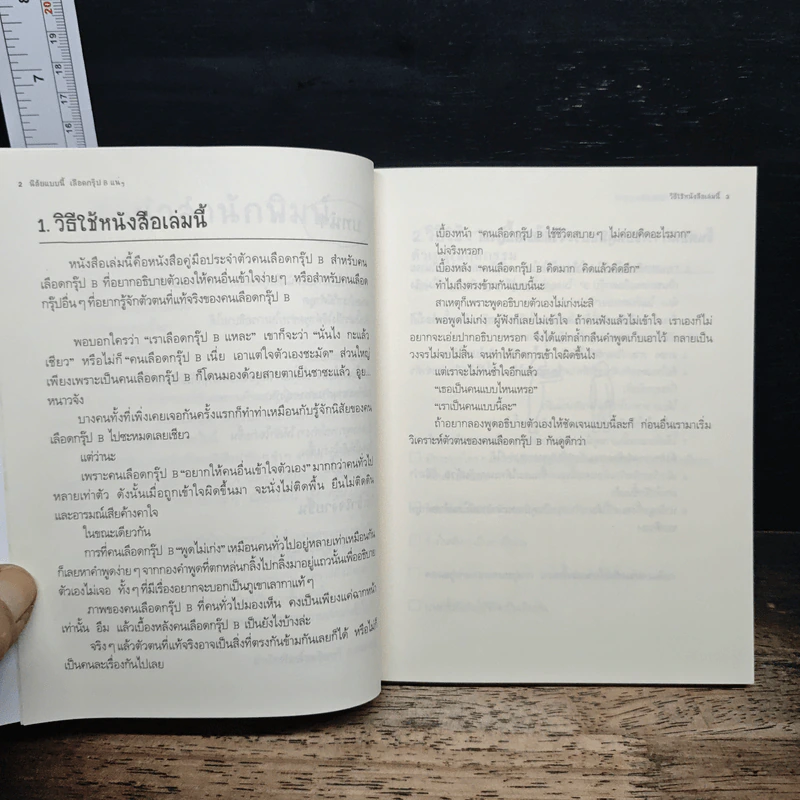 8
7
20
19
18
17
16
2 นิสัยแบบนี้ เลือดกรุ๊ป B แนๆ
1. วิธีใช้หนังสือเล่มนี้
หนังสือเล่มนี้คือหนังสือคู่มือประจำตัวคนเลือดกรุ๊ป B สำหรับคน
เลือดกรุ๊ป B ที่อยากอธิบายตัวเองให้คนอื่นเข้าใจง่ายๆ หรือสำหรับคนเลือด
กรุ๊ปอื่นๆ ที่อยากรู้จักตัวตนที่แท้จริงของคนเลือดกรุ๊ป B
พอบอกใครว่า “เราเลือดกรุ๊ป B แหละ” เขาก็จะว่า “นั่นไง กะแล้ว
เชียว” หรือไม่ก็ “คนเลือดกรุ๊ป B เนี่ย เอาแต่ใจตัวเองชะมัด” ส่วนใหญ่
เพียงเพราะเป็นคนเลือดกรุ๊ป B ก็โดนมองด้วยสายตาเย็นชาซะแล้ว อูย...
หนาวจัง
บางคนทั้งที่เพิ่งเคยเจอกันครั้งแรกก็ทำท่าเหมือนกับรู้จักนิสัยของคน
เลือดกรุ๊ป B ไปซะหมดเลยเชียว
แต่ว่านะ
เพราะคนเลือดกรุ๊ป B “อยากให้คนอื่นเข้าใจตัวเอง” มากกว่าคนทั่วไป
หลายเท่าตัว ดังนั้นเมื่อถูกเข้าใจผิดขึ้นมา จะนั่งไม่ติดพื้น ยืนไม่ติดดิน
และอารมณ์เสียค้างคาใจ
ในขณะเดียวกัน
การที่คนเลือดกรุ๊ป B “พูดไม่เก่ง” เหมือนคนทั่วไปอยู่หลายเท่าเหมือนกัน
ก็เลยหาคำพูดง่ายๆ จากกองคำพูดที่ตกหล่นกลิ้งไปกลิ้งมาอยู่แถวนั้นเพื่ออธิบาย
ตัวเองไม่เจอ ทั้งๆ ที่มีเรื่องอยากจะบอกเป็นภูเขาเลากาแท้ๆ
ภาพของคนเลือดกรุ๊ป B ที่คนทั่วไปมองเห็น คงเป็นเพียงแค่ฉากหน้า
เท่านั้น อืม แล้วเบื้องหลังคนเลือดกรุ๊ป B เป็นยังไงบ้างล่ะ
จริงๆ แล้วตัวตนที่แท้จริงอาจเป็นสิ่งที่ตรงกันข้ามกันเลยก็ได้ หรือไม่ก็
เป็นคนละเรื่องกันไปเลย
วิธีใช้หนังสือเล่มนี้ 3
เบื้องหน้า “คนเลือดกรุ๊ป B ใช้ชีวิตสบายๆ ไม่ค่อยคิดอะไรมาก”
ไม่จริงหรอก
เบื้องหลัง “คนเลือดกรุ๊ป B คิดมาก คิดแล้วคิดอีก”
ทำไมถึงตรงข้ามกันแบบนี้นะ
สาเหตุก็เพราะพูดอธิบายตัวเองไม่เก่งน่ะสิ
พอพูดไม่เก่ง ผู้ฟังก็เลยไม่เข้าใจ ถ้าคนฟังแล้วไม่เข้าใจ เราเองก็ไม่
อยากจะเอ่ยปากอธิบายหรอก จึงได้แต่กล้ำกลืนคำพูดเก็บเอาไว้ กลายเป็น
วงจรไม่จบไม่สิ้น จนทำให้เกิดการเข้าใจผิดขึ้นไง
แต่เราจะไม่ทนช้ำใจอีกแล้ว
“เธอเป็นคนแบบไหนเหรอ”
“เราเป็นคนแบบนี้ละ”
ถ้าอยากลองพูดอธิบายตัวเองให้ชัดเจนแบบนี้ละก็ ก่อนอื่นเรามาเริ่ม
วิเคราะห์ตัวตนของคนเลือดกรุ๊ป B กันดูดีกว่า